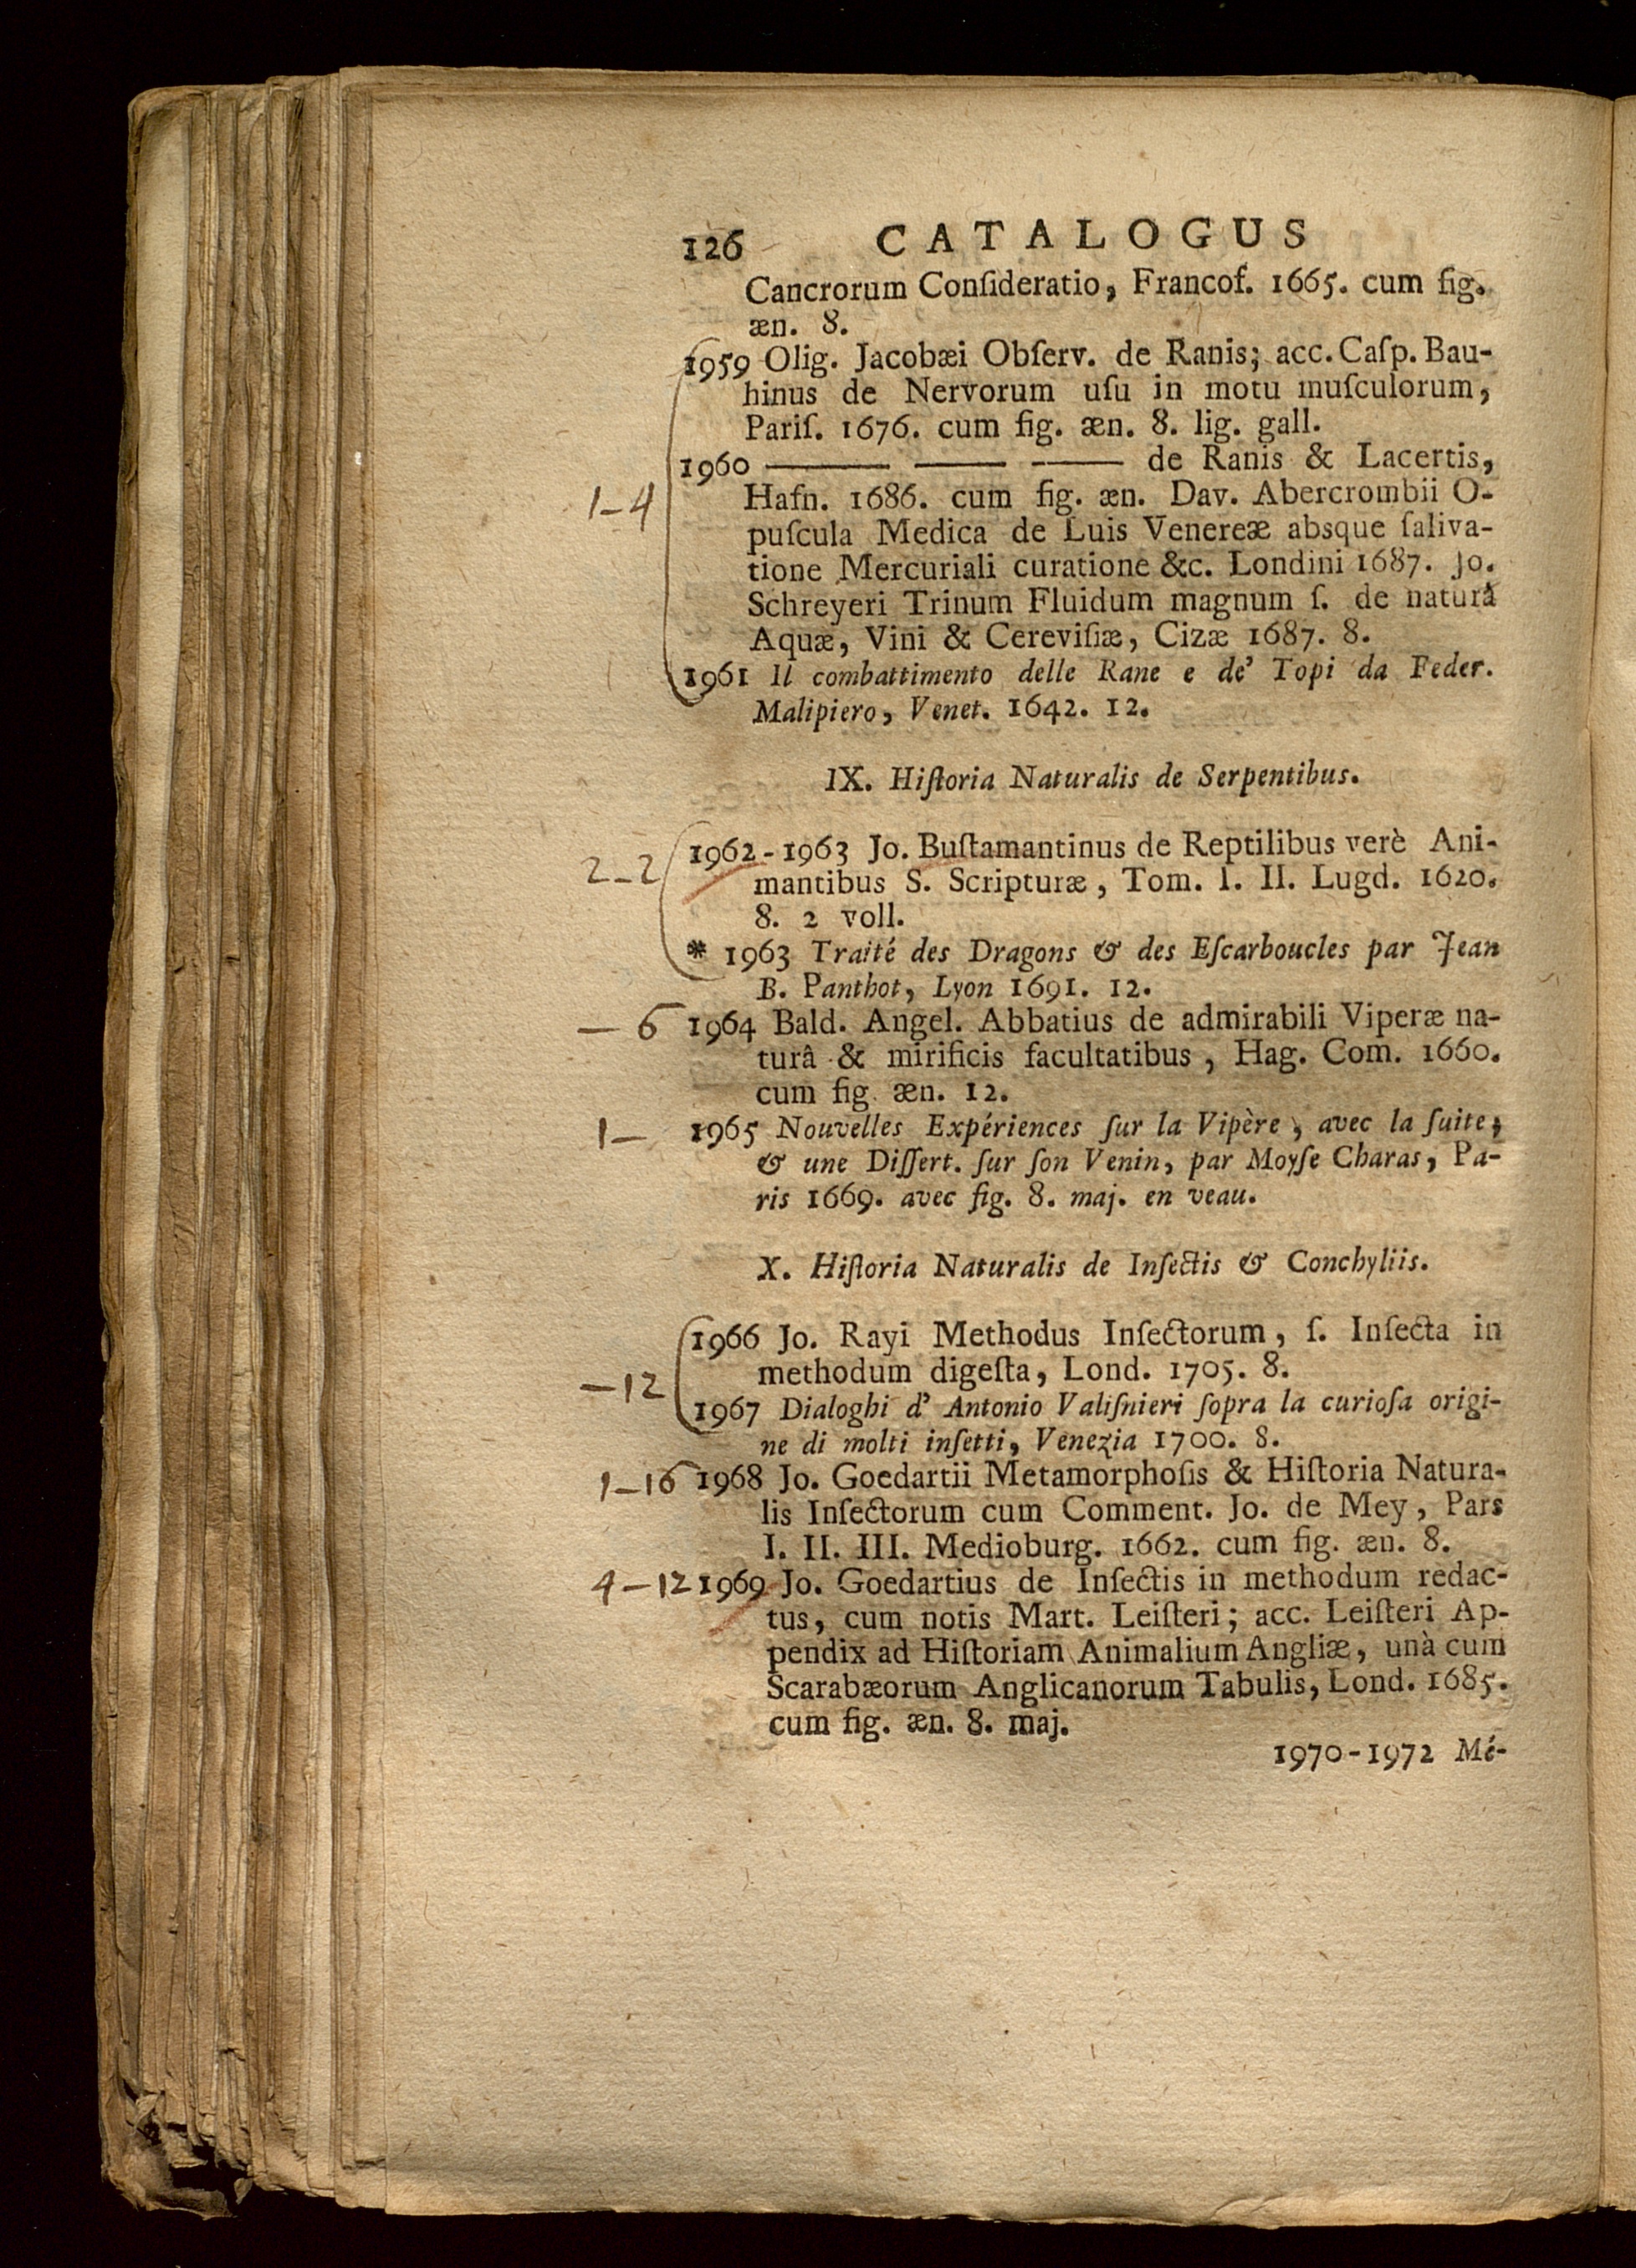 126 CATALOGUS
Cancrorum Conſideratio, Francof. 1665. cum fig.
æn. 8.
1959 Olig. Jacobæi Obſerv. de Ranis; acc. Caſp. Bau-
hinus de Nervorum uſu in motu muſculorum,
Pariſ. 1676. cum fig. æn. 8. lig. gall.
1960 ——— ——— ——— de Ranis & Lacertis,
1-4 Hafn. 1686. cum fig. æn. Dav. Abercrombii O-
puſcula Medica de Luis Venereæ absque ſaliva-
tione Mercuriali curatione &c. Londini 1687. Jo.
Schreyeri Trinum Fluidum magnum ſ. de naturâ
Aquæ, Vini & Cereviſiæ, Cizæ 1687. 8.
1961 Il combattimento delle Rane e de' Topi da Feder.
Malipiero, Venet. 1642. 12.
IX. Hiſtoria Naturalis de Serpentibus.
1962-1963 Jo. Buſtamantinus de Reptilibus verè Ani-
2-2 mantibus S. Scripturæ, Tom. I. II. Lugd. 1620.
8. 2 voll.
* 1963 Traité des Dragons & des Eſcarboucles par Jean
B. Panthot, Lyon 1691. 12.
-6 1964 Bald. Angel. Abbatius de admirabili Viperæ na-
turâ & mirificis facultatibus, Hag. Com. 1660.
cum fig. æn. 12.
1- 1965 Nouvelles Expériences ſur la Vipère, avec la ſuite,
& une Diſſert. ſur ſon Venin, par Moyſe Charas, Pa-
ris 1669. avec fig. 8. maj. en veau.
X. Hiſtoria Naturalis de Inſectis & Conchyliis.
1966 Jo. Rayi Methodus Inſectorum, ſ. Inſecta in
-12 methodum digeſta, Lond. 1705. 8.
1967 Dialoghi d' Antonio Valiſnieri ſopra la curioſa origi-
ne di molti inſetti, Venezia 1700. 8.
1-16 1968 Jo. Goedartii Metamorphoſis & Hiſtoria Natura-
lis Inſectorum cum Comment. Jo. de Mey, Pars
I. II. III. Medioburg. 1662. cum fig. æn. 8.
4-12 1969 Jo. Goedartius de Inſectis in methodum redac-
tus, cum notis Mart. Leiſteri; acc. Leiſteri Ap-
pendix ad Hiſtoriam Animalium Angliæ, unà cum
Scarabæorum Anglicanorum Tabulis, Lond. 1685.
cum fig. æn. 8. maj.
1970-1972 Mé-